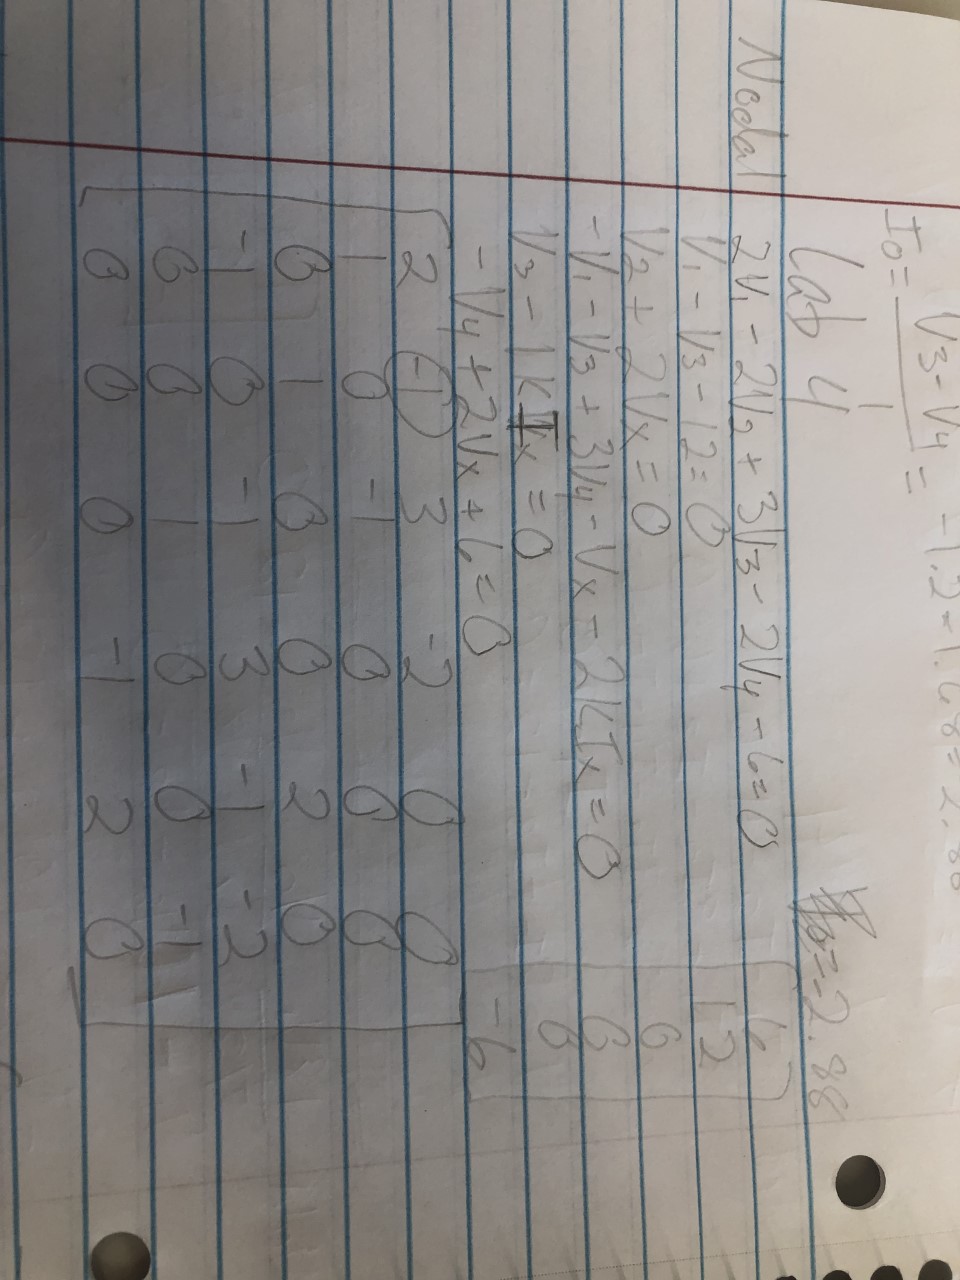 I0 = V3 - V4 / 1 = -1.2 - 1.68 = 2.88
Lab 4
= -2.88
Nodal
2V1 - 2V2 + 3V3 - 2V4 - 6 = 0
6
V1 - V3 - 12 = 0
12
V2 + 2Vx = 0
0
-V1 - V3 + 3V4 - Vx - 2kIx = 0
0
V3 - 1kIx = 0
0
-V4 + 2Vx + 6 = 0
-6
2 -1 3 -2 0 0
1 0 -1 0 0 0
0 1 0 0 2 0
-1 0 -1 3 -1 -2
0 0 1 0 0 -1
0 0 0 -1 2 0